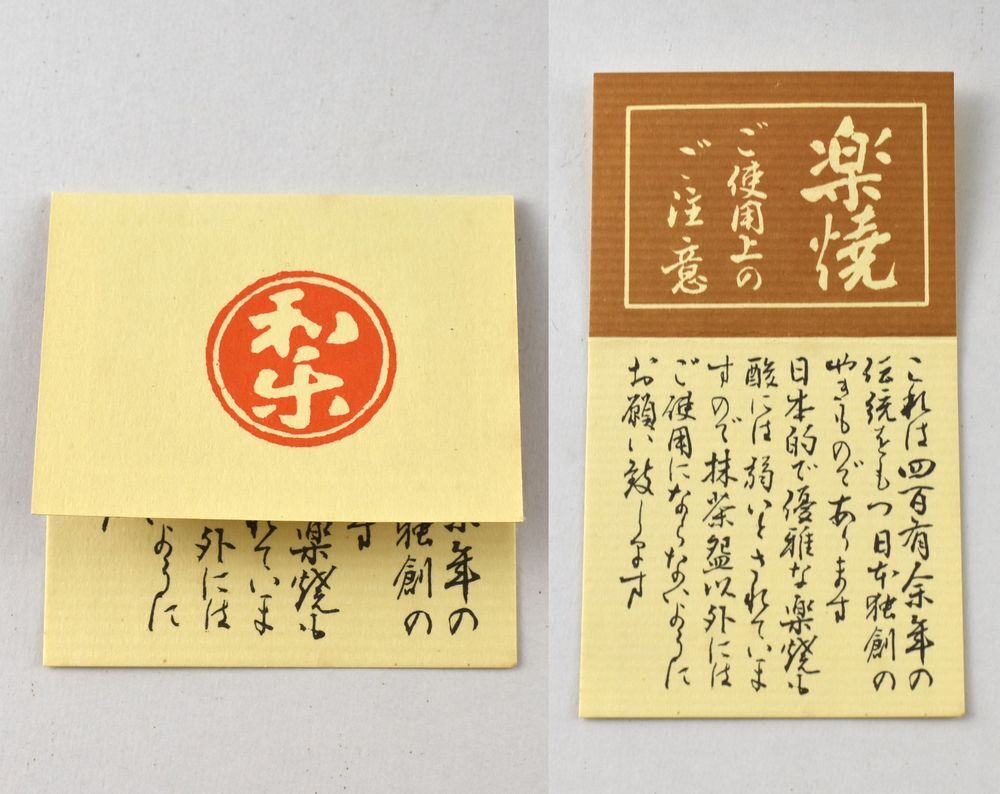 和
楽
年の
独創の
す
楽焼も
れていま
外には
いように
楽焼
ご使用上の
ご注意
これは四百有余年の
伝統をもつ日本独創の
やきものであります
日本的で優雅な楽焼も
酸には弱いとされていま
すので抹茶盌以外には
ご使用にならないように
お願い致します